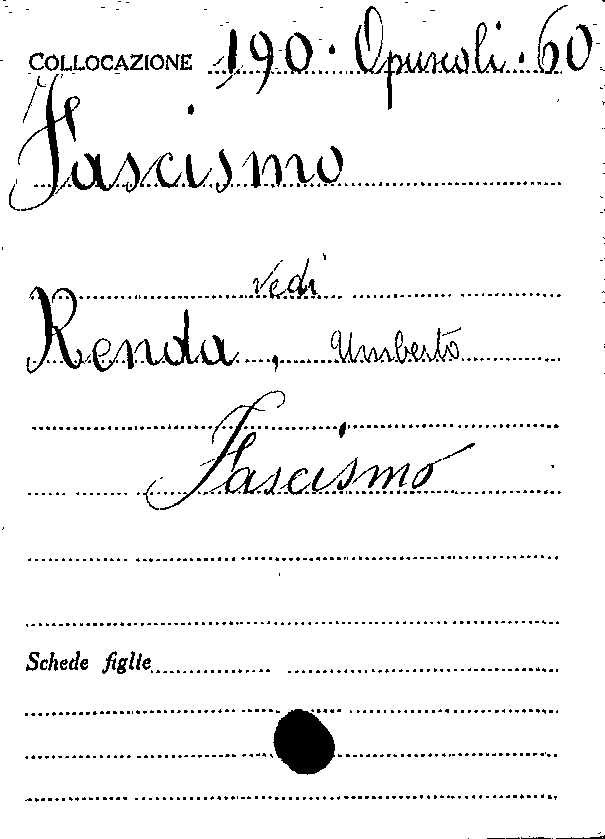 COLLOCAZIONE 190. Opuscoli. 60
Fascismo
vedi
Renda, Umberto
Fascismo
Schede figlie